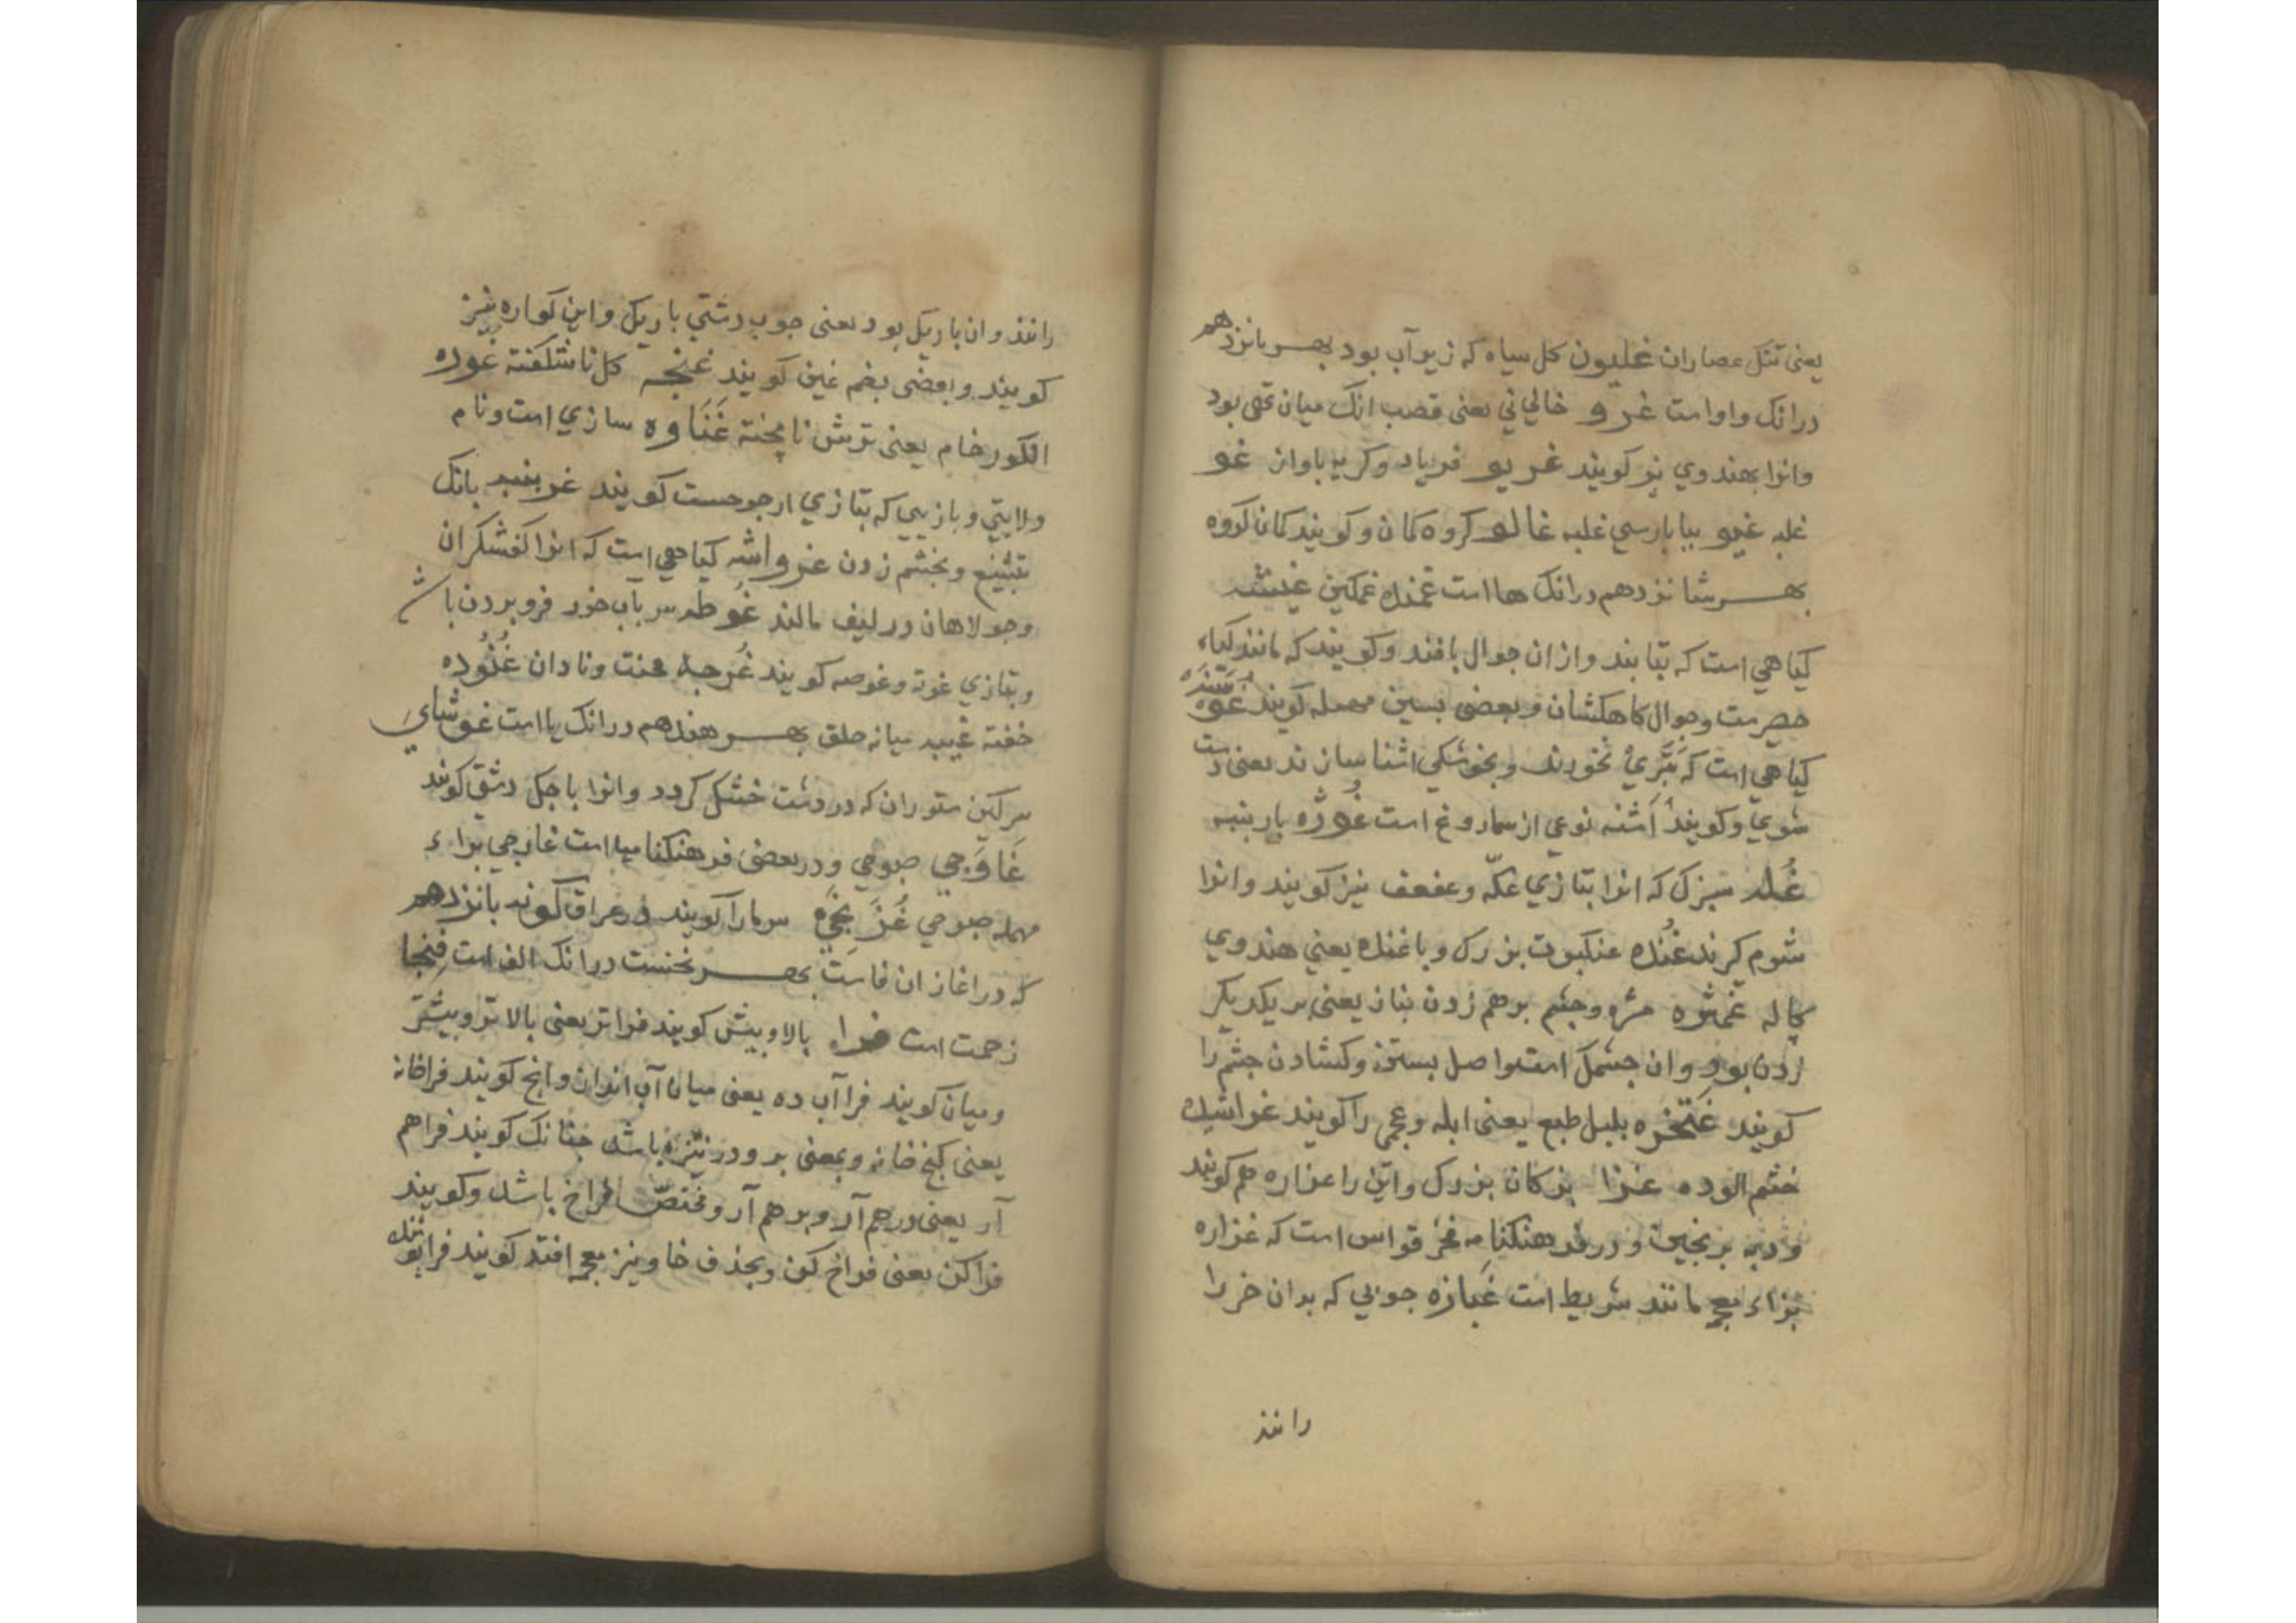 یعنی تنک عصاران غلیون کل سیاه که زیر آب بود بهر بانزدهم
درانک واو است غرو خالی نی یعنی قصب انک میان تهی بود
وانرا بهندوی نر کویند غریو فریاد وکریه باواز غو
غلبه غیو ببا بارسی غلبه غالو کروه کمان و کویند کمان کروه
بهر شانزدهم درانک ها است غمنده غمکین غیشه
کیاهی است که بتابند وازان جوال بافند وکویند که مانند کیاء
حصرست وجوال کاهکشان و بعضی بسین مهمله کویند غوشنه
کیاهی است که بتری بخورند و بخوشکی اشنا سازند یعنی دست
شوی وکویند اشنه نوعی از سماروغ است غوژه بار بنبه
غلبه سبزک که انرا بتازی عکّه وعقعق نیز کویند وانرا
شوم کیرند غنده عنکبوت بزرک و باغنده یعنی هندوی
کاله غمژه مژه وچشم برهم زدن بناز یعنی بر یکدیکر
زدن بود وان چشمک است واصل بستن وکشادن چشم را
کویند غتخره بلیل طبع یعنی ابله وعجمی را کویند غواشیده
خشم الوده بزکان بزرک واین را غراره هم کویند
ودبه برنجین و در فرهنکنامه فخر قواس است که غزاره
بزاء معجمه مانند شریط است غبازه جوبی که بدان خر را
رانند
رانند وان باریک بود یعنی جوب دشتی باریک واین کواره نیز
کویند و بعضی بضم غین کویند غنجه کل ناشکفته غوره
انکور خام یعنی ترش نا پخته غناوه سازی است ونام
ولایتی و بازیی که بتازی ارجوحست کویند غربنبه بانک
تشنیع وبخشم زدن غرواشه کیاهی است که انرا کفشکران
وجولاهان در لیف مالند غوطه سر باب خود فرو بردن باشد
وبتازی غوته وغوصه کویند غرجه عنت ونادان غنوده
خفته غیبه میانه حلق بهر هفدهم درانک یا است غوشای
سرکین ستوران که در دشت خشک کردد وانرا باجک دشتی کویند
غاوجی صبوحی و در بعضی فرهنکنامها است غارجی براء
مهمله صبوحی سرما را کویند در عراق کونه بانزدهم
که در اغاز ان فاست بهر نخست درانک الف است فنجا
زحمت است فرا بالا وبیش کویند فراتر یعنی بالاتر وبیشتر
ومیان کویند فرا آب ده یعنی میان آب انداز وانج کویند فراخانه
یعنی کنج خانه و بمعنی بر ودر نیز باشد جنانک کویند فراهم
آر یعنی درهم آر و برهم آر ومختصر فراخ باشد وکویند
فرا کن یعنی فراخ کن وبحذف خا ونیز معجمه افتد کویند فرا